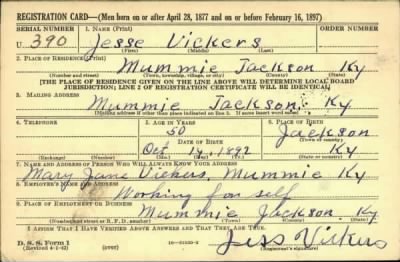 REGISTRATION CARD—(Men born on or after April 28, 1877 and on or before February 16, 1897)
SERIAL NUMBER 1. NAME (Print) ORDER NUMBER
U 390 Jesse Vickers
(First) (Middle) (Last)
2. PLACE OF RESIDENCE (Print)
Mummie Jackson Ky
(Number and street) (Town, township, village, or city) (County) (State)
[THE PLACE OF RESIDENCE GIVEN ON THE LINE ABOVE WILL DETERMINE LOCAL BOARD
JURISDICTION; LINE 2 OF REGISTRATION CERTIFICATE WILL BE IDENTICAL]
3. MAILING ADDRESS
Mummie Jackson Ky
(Mailing address if other than place indicated on line 2. If same insert word same)
4. TELEPHONE 5. AGE IN YEARS 6. PLACE OF BIRTH
50 Jackson
DATE OF BIRTH (Town or county)
Oct 14, 1892 Ky
(Mo.) (Day) (Yr.) (State or country)
7. NAME AND ADDRESS OF PERSON WHO WILL ALWAYS KNOW YOUR ADDRESS
Mary Jane Vickers, Mummie Ky
8. EMPLOYER'S NAME AND ADDRESS
Working for self
9. PLACE OF EMPLOYMENT OR BUSINESS
Mummie Jackson Ky
(Number and street or R. F. D. number) (Town) (County) (State)
I AFFIRM THAT I HAVE VERIFIED ABOVE ANSWERS AND THAT THEY ARE TRUE.
D. S. S. Form 1
(Revised 4-1-42) (over)
Jess Vickers
(Registrant's signature)